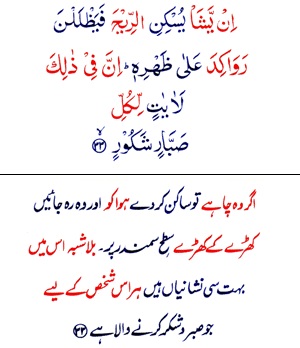 اِنْ يَّشَاْ يُسْكِنِ الرِّيْحَ فَيَظْلَلْنَ
رَوَاكِدَ عَلٰى ظَهْرِهٖ ؕ اِنَّ فِيْ ذٰلِكَ
لَاٰيٰتٍ لِّكُلِّ
صَبَّارٍ شَكُوْرٍ ۙ﴿۳۳﴾
اگر وہ چاہے تو ساکن کر دے ہوا کو اور وہ رہ جائیں
کھڑے کے کھڑے سطح سمندر پر۔ بلاشبہ اس میں
بہت سی نشانیاں ہیں ہر اس شخص کے لیے
جو صبر و شکر کرنے والا ہے ﴿۳۳﴾